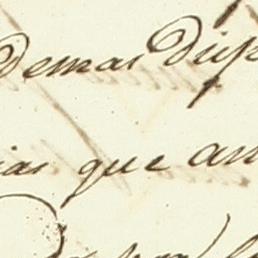 demas Disp
ias que an